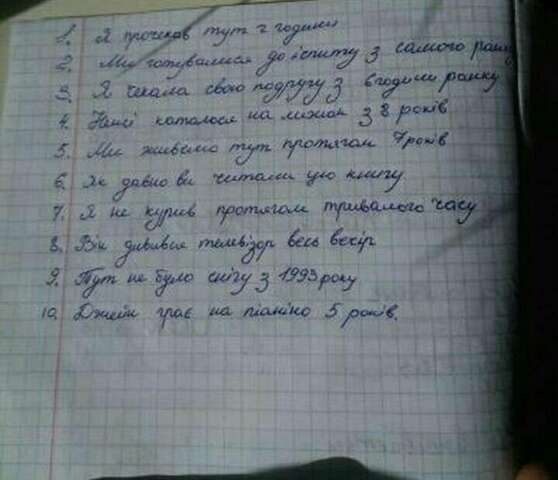 1. Я прочекав тут 2 години
2. Ми готувалися до іспиту з самого ранку
3. Я чекала свою подругу з 6 години ранку
4. Ненсі каталася на лижах з 8 років
5. Ми живемо тут протягом 7 років
6. Як давно ви читали цю книгу
7. Я не курив протягом тривалого часу
8. Він дивився телевізор весь вечір
9. Тут не було снігу з 1993 року
10. Джейн грає на піаніно 5 років.